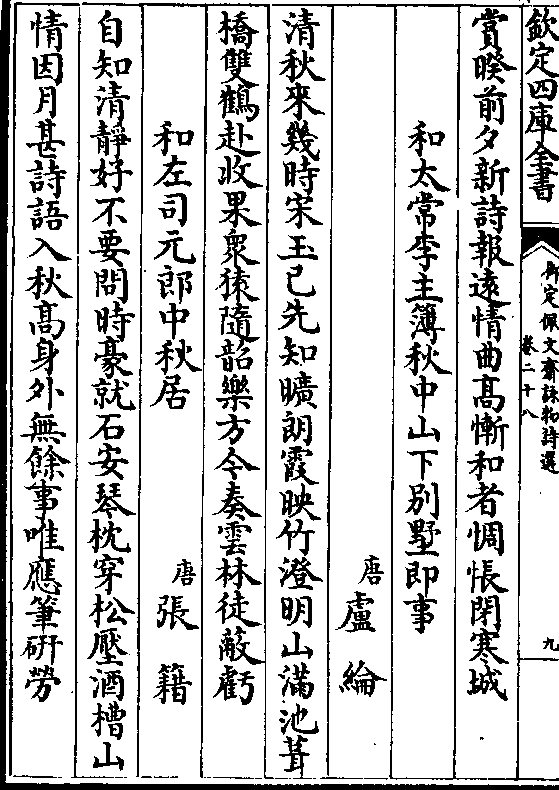 欽定四庫全書
御定佩文齋詠物詩選
卷二十八
九
賞暌前夕新詩報遠情曲髙慚和者惆悵閉寒城
和太常李主簿秋中山下別墅即事
唐盧綸
清秋來幾時宋玉已先知曠朗霞映竹澄明山滿池葺
橋雙鶴赴收果衆猿隨韶樂方今奏雲林徒蔽虧
和左司元郎中秋居
唐張籍
自知清靜好不要問時豪就石安琴枕穿松壓酒槽山
情因月甚詩語入秋髙身外無餘事唯應筆硏勞